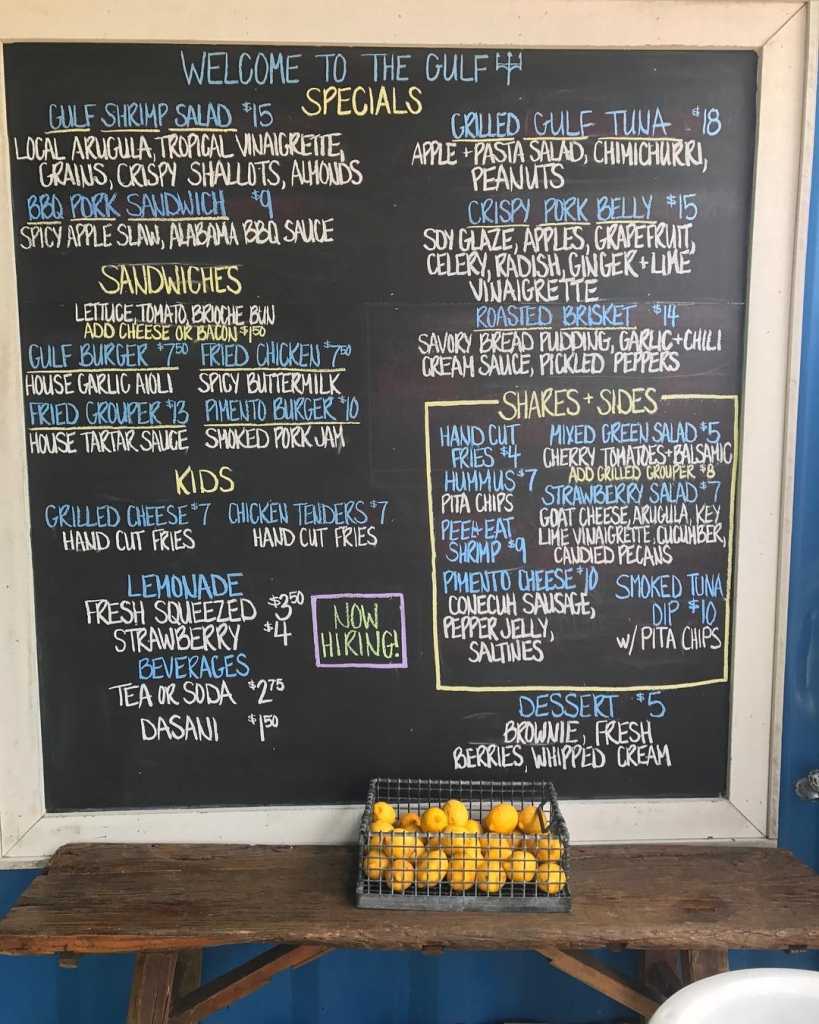 WELCOME TO THE GULF
SPECIALS
GULF SHRIMP SALAD $15
LOCAL ARUGULA, TROPICAL VINAIGRETTE,
GRAINS, CRISPY SHALLOTS, ALMONDS
BBQ PORK SANDWICH $9
SPICY APPLE SLAW, ALABAMA BBQ SAUCE
GRILLED GULF TUNA $18
APPLE + PASTA SALAD, CHIMICHURRI,
PEANUTS
CRISPY PORK BELLY $15
SOY GLAZE, APPLES, GRAPEFRUIT,
CELERY, RADISH, GINGER + LIME
VINAIGRETTE
ROASTED BRISKET $14
SAVORY BREAD PUDDING, GARLIC + CHILI
CREAM SAUCE, PICKLED PEPPERS
SANDWICHES
LETTUCE, TOMATO, BRIOCHE BUN
ADD CHEESE OR BACON $1.50
GULF BURGER $7.50
HOUSE GARLIC AIOLI
FRIED CHICKEN $7.50
SPICY BUTTERMILK
FRIED GROUPER $13
HOUSE TARTAR SAUCE
PIMENTO BURGER $10
SMOKED PORK JAM
KIDS
GRILLED CHEESE $7
HAND CUT FRIES
CHICKEN TENDERS $7
HAND CUT FRIES
LEMONADE
FRESH SQUEEZED $3.50
STRAWBERRY $4
BEVERAGES
TEA OR SODA $2.75
DASANI $1.50
NOW
HIRING!
SHARES + SIDES
HAND CUT
FRIES $4
HUMMUS $7
PITA CHIPS
PEEL + EAT
SHRIMP $9
PIMENTO CHEESE $10
CONECUH SAUSAGE,
PEPPER JELLY,
SALTINES
MIXED GREEN SALAD $5
CHERRY TOMATOES + BALSAMIC
ADD GRILLED GROUPER $8
STRAWBERRY SALAD $7
GOAT CHEESE, ARUGULA, KEY
LIME VINAIGRETTE, CUCUMBER,
CANDIED PECANS
SMOKED TUNA
DIP $10
W/ PITA CHIPS
DESSERT $5
BROWNIE, FRESH
BERRIES, WHIPPED CREAM